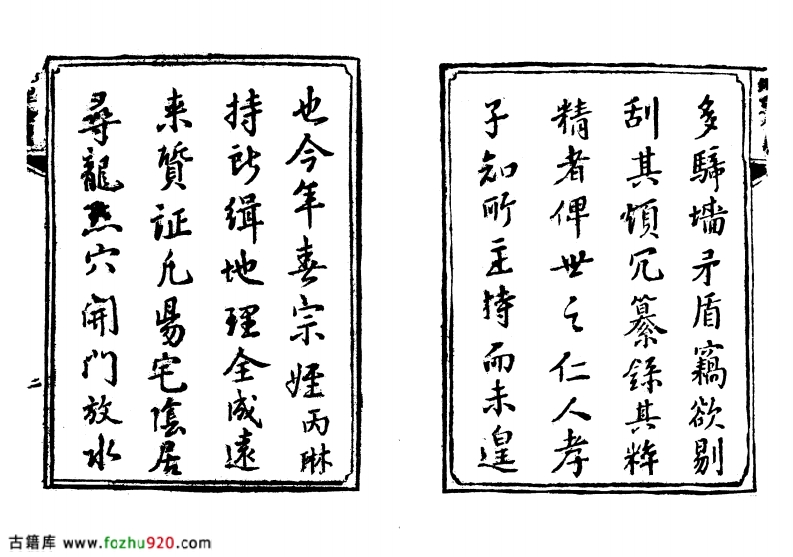 多騎墻矛盾竊欲剔
刮其煩冗纂錄其粹
精者俾世之仁人孝
子知所主持而未遑
也今年春宗姪丙琳
持所緝地理全成遠
来質証凡陽宅陰居
尋龍點穴開門放水
二
古籍库 www.fozhu920.com